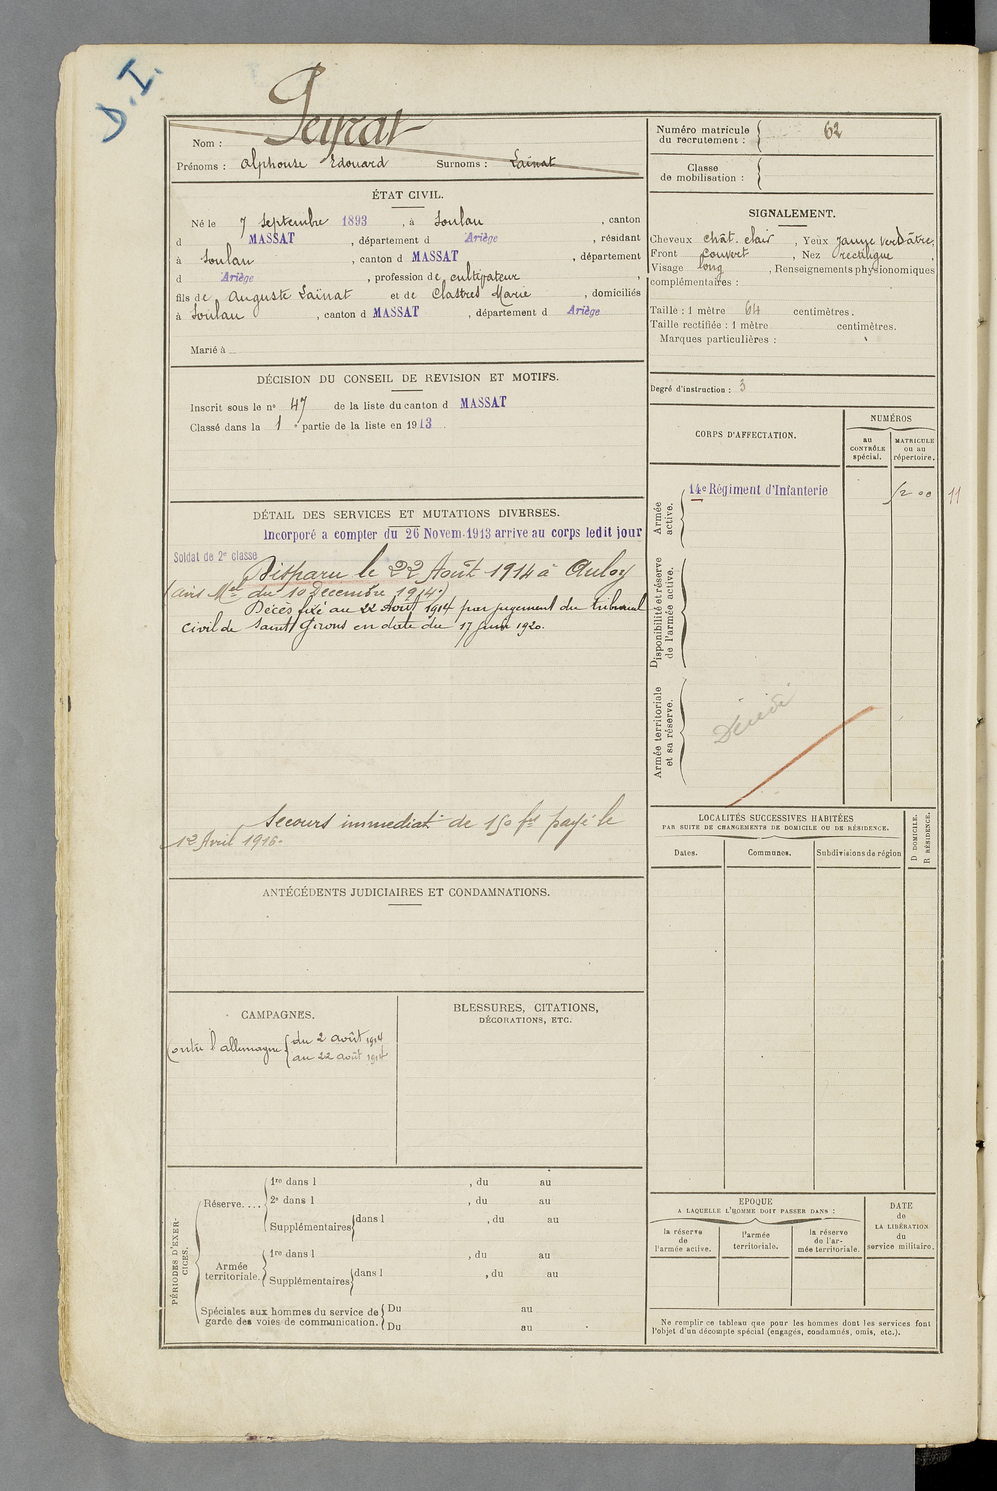 D.I.
Peyrat
Nom :
Prénoms : Alphonse Edouard Surnoms : Laïnat
ÉTAT CIVIL.
Né le 7 Septembre 1893, à Soulan, canton
d MASSAT, département d Ariège, résidant
à Soulan, canton d MASSAT, département
d Ariège, profession de cultivateur,
fils de Auguste Laïnat et de Clastres Marie, domiciliés
à Soulan, canton d MASSAT, département d Ariège
Marié à
DÉCISION DU CONSEIL DE REVISION ET MOTIFS.
Inscrit sous le n° 47 de la liste du canton d MASSAT
Classé dans la 1e partie de la liste en 1913.
DÉTAIL DES SERVICES ET MUTATIONS DIVERSES.
Incorporé a compter du 26 Novem. 1913 arrive au corps ledit jour
Soldat de 2e classe
Disparu le 22 Août 1914 à Auloy
(avis Mel du 10 Décembre 1914.)
Décès fixé au 22 Août 1914 par jugement du Tribunal
civil de Saint Girons en date du 17 juin 1920.
Secours immediat de 150 fs payé le
12 Avril 1916.
ANTÉCÉDENTS JUDICIAIRES ET CONDAMNATIONS.
CAMPAGNES.
Contre l'allemagne du 2 août 1914
au 22 août 1914
BLESSURES, CITATIONS,
DÉCORATIONS, ETC.
PÉRIODES D'EXER-
CICES.
Réserve....
1re dans l , du au
2e dans l , du au
Supplémentaires dans l , du au
Armée
territoriale.
1re dans l , du au
Supplémentaires dans l , du au
Spéciales aux hommes du service de
garde des voies de communication.
Du au
Du au
Numéro matricule
du recrutement : 62
Classe
de mobilisation :
SIGNALEMENT.
Cheveux chât. clair, Yeux jaune verdâtre,
Front couvert, Nez rectiligne,
Visage long, Renseignements physionomiques
complémentaires :
Taille : 1 mètre 64 centimètres.
Taille rectifiée : 1 mètre centimètres.
Marques particulières :
Degré d'instruction : 3
CORPS D'AFFECTATION.
NUMÉROS
au
CONTRÔLE
spécial.
MATRICULE
ou au
répertoire.
Armée
active.
14e Régiment d'Infanterie
11
Disponibilité et réserve
de l'armée active.
Armée territoriale
et sa réserve.
Décédé
LOCALITÉS SUCCESSIVES HABITÉES
PAR SUITE DE CHANGEMENTS DE DOMICILE OU DE RÉSIDENCE.
D DOMICILE.
R RÉSIDENCE.
Dates. Communes. Subdivisions de région
EPOQUE
A LAQUELLE L'HOMME DOIT PASSER DANS :
la réserve
de
l'armée active.
l'armée
territoriale.
la réserve
de l'ar-
mée territoriale.
DATE
de
LA LIBÉRATION
du
service militaire.
Ne remplir ce tableau que pour les hommes dont les services font
l'objet d'un décompte spécial (engagés, condamnés, omis, etc.).